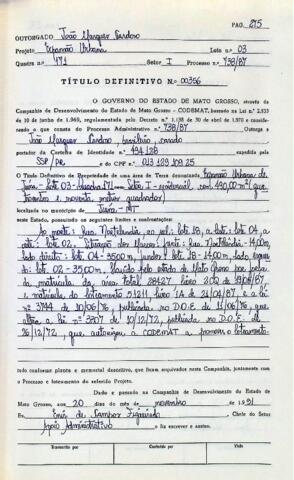 PAG. 275
OUTORGADO João Marques Cardoso
Projeto Expansão Urbana Lote n.o 03
Quadra n.o 171 Setor I Processo n.o 738/87
TÍTULO DEFINITIVO N.o 00356
O GOVERNO DO ESTADO DE MATO GROSSO, através da
Companhia de Desenvolvimento do Estado de Mato Grosso - CODEMAT, baseado na Lei n.o
de 10 de junho de 1.969, regulamentada pelo Decreto n.o 1.138 de 30 de abril de 1.970 e considerando
o que consta do Processo Administrativo n.o 738/87 Outorga a
João Marques Cardoso, brasileiro, casado
portador da Carteira de Identidade n.o 494.128 expedida pela
SSP/PR e do CPF n.o 013 129 109 25
O Título Definitivo de Propriedade de uma área de Terra denominada Expansão Urbana de
Lote 03 - Quadra 171 Setor I - residencial, com 490,00 m² (quatrocentos
e noventa metros quadrados)
localizado no município de MT
neste Estado, possuindo os seguintes limites e confrontações:
Ao norte: Rua ao sul: lote 18, a lote 04, a
lote 02. Situação dos frente: Rua 14,00m,
lado direito: lote 04 - 35,00m, fundos: lote 18 - 14,00m, lado esquerdo:
lote 02 - 35,00m, pelo estado de Mato Grosso
da matrícula da área total 28427 livro 2
matrícula do loteamento livro 21/04/87, e a lei
nº 3744 de 10/06/76, publicada no D.O.E. de 11/06/76, que
altera a lei nº 3307 de 10/12/72, publicada no D.O.E. de
26/12/72, que autorizou a CODEMAT a promover o loteamento
tudo conforme planta e memorial descritivo, que foram arquivados nesta Companhia, juntamente com
o Processo e loteamento do referido Projeto.
Dado e passado na Companhia de Desenvolvimento do Estado de
Mato Grosso, aos 20 dias do mês de novembro de 1.991
Eu, de Campos Figueiredo Chefe do Setor
Apoio Administrativo o fiz escrever e assino.
Transcrito por
Conferido por
Visto